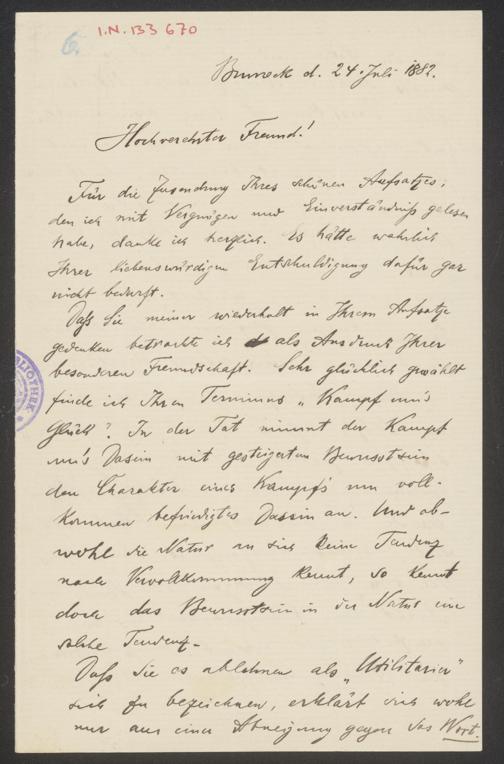 6.
I.N. 133 670
Bruneck d. 24. Juli 1882.
Hochverehrter Freund!
Für die Zusendung Ihres schönen Aufsatzes,
den ich mit Vergnügen und Einverständniß gelesen
habe, danke ich herzlich. Es hätte wahrlich
Ihrer liebenswürdigen Entschuldigung dafür gar
nicht bedurft.
Daß Sie meiner wiederholt in Ihrem Aufsatze
gedenken betrachte ich als Ausdruck Ihrer
besonderen Freundschaft. Sehr glücklich gewählt
finde ich Ihren Terminus „Kampf um's
Glück". In der Tat nimmt der Kampf
um's Dasein mit gesteigertem Bewusstsein
den Charakter eines Kampfs um voll-
kommen befriedigtes Dasein an. Und ob-
wohl die Natur an sich keine Tendenz
nach Vervollkommnung kennt, so kennt
doch das Bewusstsein in der Natur eine
solche Tendenz.
Daß Sie es ablehnen als „Utilitarier"
sich zu bezeichnen, erklärt sich wohl
nur aus einer Abneigung gegen das Wort.
BLIOTHEK